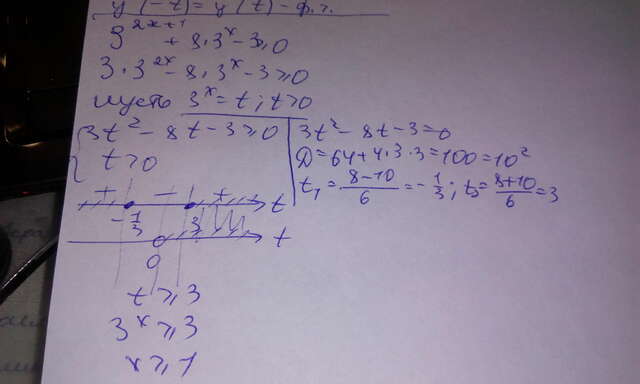 y(-t) = y(t) - ф.г.
3^{2x+1} + 8·3^x - 3 ≥ 0
3·3^{2x} - 8·3^x - 3 ≥ 0
пусть 3^x = t; t > 0
{ 3t² - 8t - 3 ≥ 0
t > 0
3t² - 8t - 3 = 0
D = 64 + 4·3·3 = 100 = 10²
t₁ = (8-10)/6 = -1/3; t₂ = (8+10)/6 = 3
+ - + t
-1/3 3
t
0
t ≥ 3
3^x ≥ 3
x ≥ 1